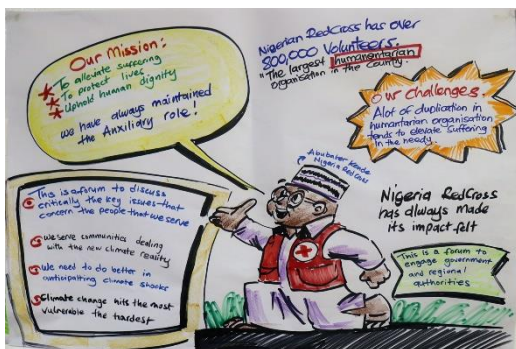 Our Mission:
To alleviate suffering
To protect lives
Uphold human dignity
We have always maintained
the Auxiliary role!
Nigerian RedCross has over
800,000 Volunteers.
"The largest humanitarian
organisation in the Country.
Our challenges.
Alot of duplication in
humanitarian organisation
tends to elevate suffering
in the needy.
Abubakar Kende
Nigeria RedCross
This is a forum to discuss
critically the key issues that
concern the people that we serve
We serve communities dealing
with the new climate reality
We need to do better in
anticipatiing climate shocks
Climate change hits the most
vulnerable the hardest
Nigeria RedCross
has always made
its impact felt
This is a forum to
engage government
and regional
authorities